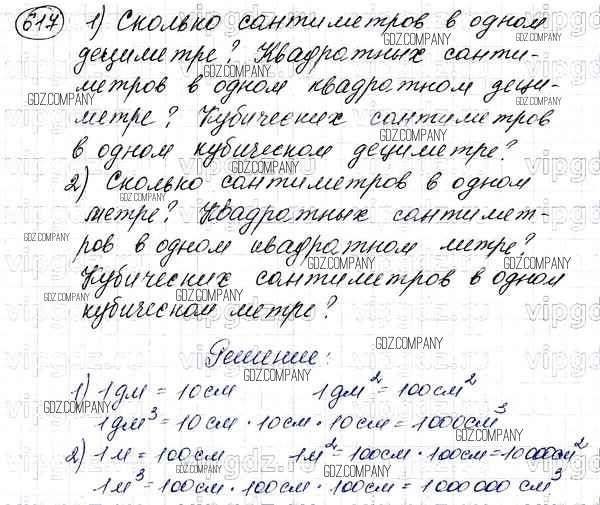 617 1) Сколько сантиметров в одном
дециметре? Квадратных санти-
метров в одном квадратном деци-
метре? Кубических сантиметров
в одном кубическом дециметре?
2) Сколько сантиметров в одном
метре? Квадратных сантимет-
ров в одном квадратном метре?
Кубических сантиметров в одном
кубическом метре?
Решение:
1) 1 дм = 10 см 1 дм² = 100 см²
1 дм³ = 10 см · 10 см · 10 см = 1000 см³
2) 1 м = 100 см 1 м² = 100 см · 100 см = 10000 см²
1 м³ = 100 см · 100 см · 100 см = 1000 000 см³